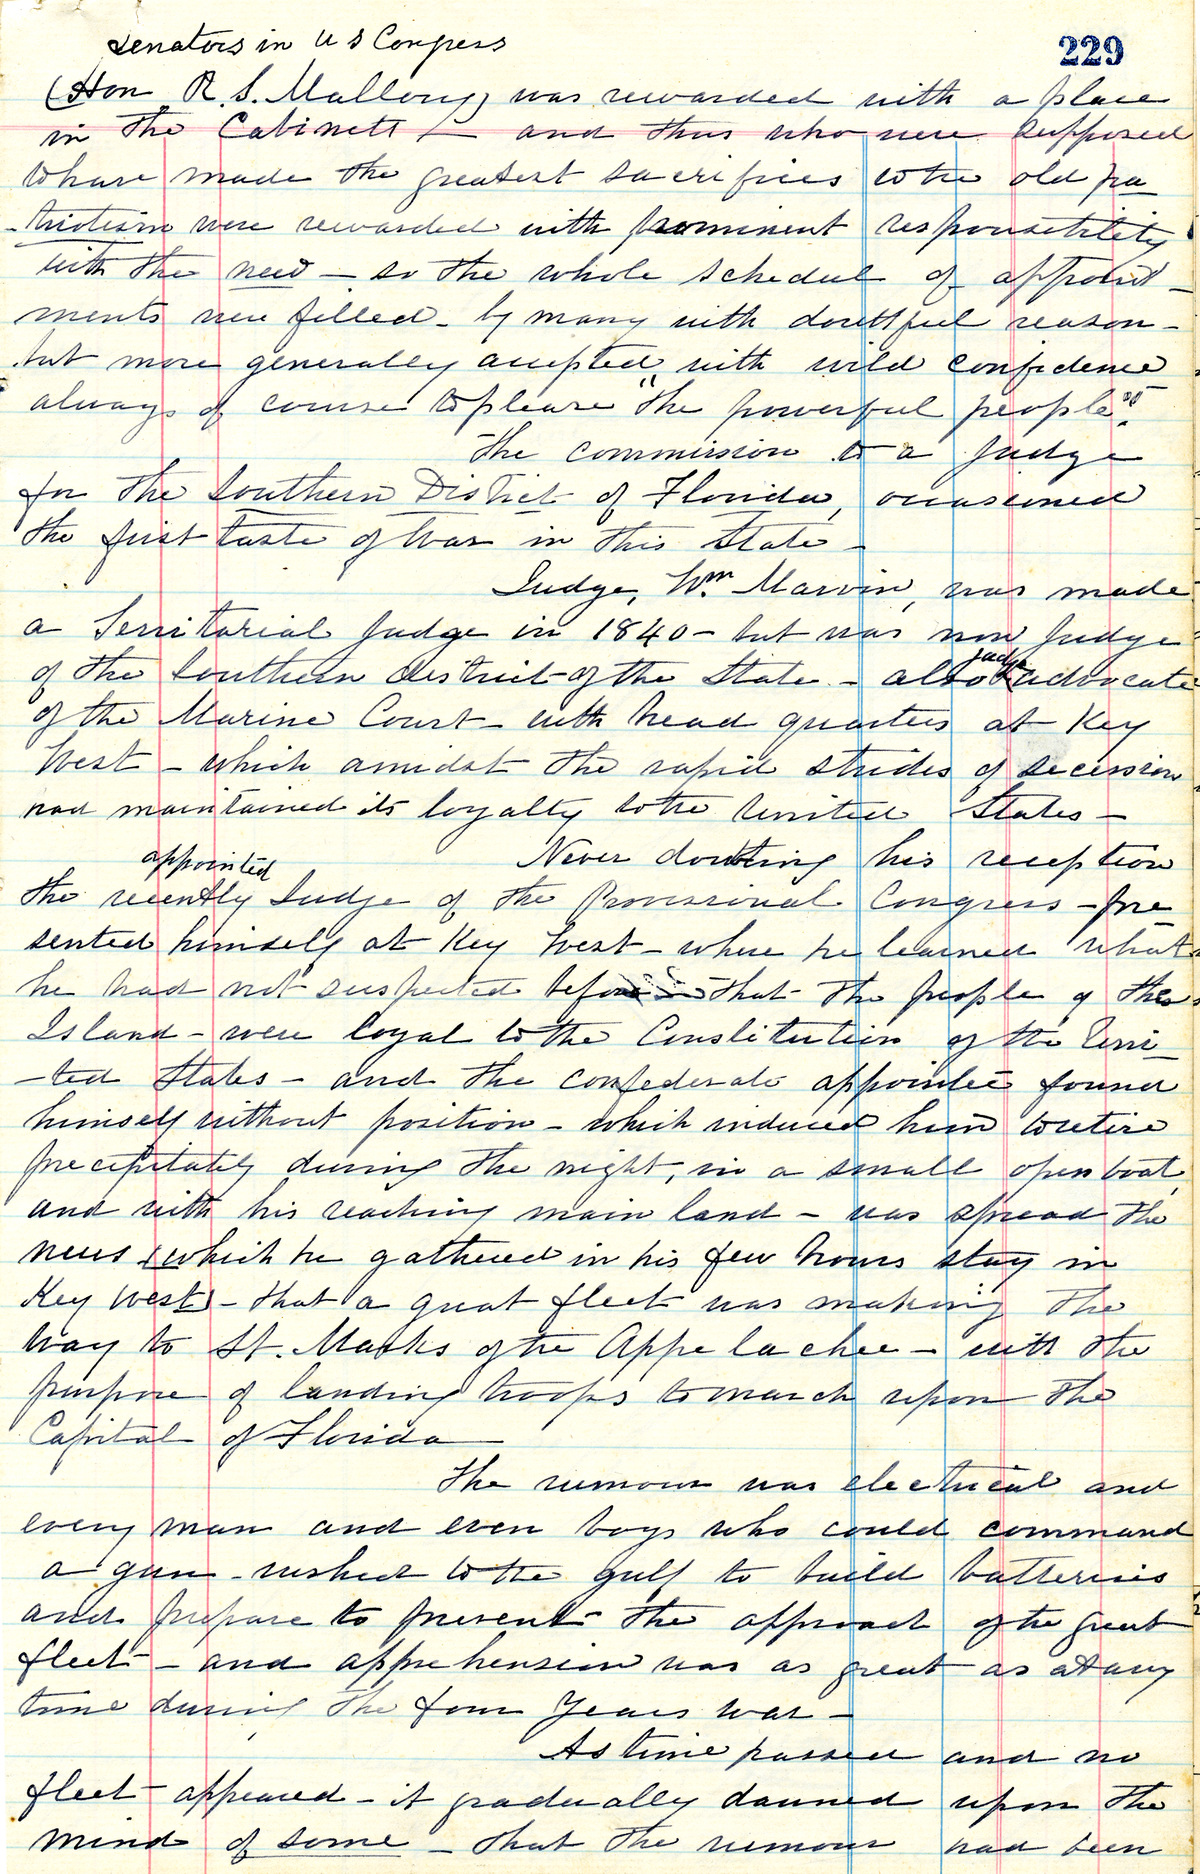 senators in U S Congress
229
(Hon R. S. Mallory) was rewarded with a place
in the Cabinett — and thus who were supposed
to have made the greatest sacrifices to the old pa
-triotism were rewarded with prominent responsibility
with the new — so the whole schedule of appoint-
ments were filled - by many with doubtful reason -
but more generally accepted, with wild confidence
always of course to please "the powerful people".
The commission to a Judge
for the Southern District of Florida, occasioned
the first taste of War in this State —
Judge, Wm. Marvin, was made
a Territorial Judge in 1840 - but was now Judge
of the Southern district of the State - also judge advocate
of the Marine Court - with head quarters at Key
West - which amidst the rapid strides of secession
had maintained its loyalty to the United States —
Never doubting his reception
the recently appointed Judge of the Provisional Congress - pre
sented himself at Key West - where he learned what
he had not suspected before - that the people of the
Island - were loyal to the Constitution of the Uni
-ted States - and the confederate appointee found
himself without position - which induced him to retire
precipitately during the night, in a small open boat,
and with his reaching main land - was spread the
news (which he gathered in his few hours stay in
Key West) - that a great fleet was making the
way to St. Marks of the Appelachee - with the
purpose of landing troops to march upon the
Capital of Florida —
The rumour was electrical and
every man and even boys who could command
a gun - rushed to the gulf to build batteries
and prepare to prevent the approach of the great
fleet - and apprehension was as great as at any
time during the four Years War —
As time passed and no
fleet appeared - it gradually dawned upon the
mind of some - that the rumour had been